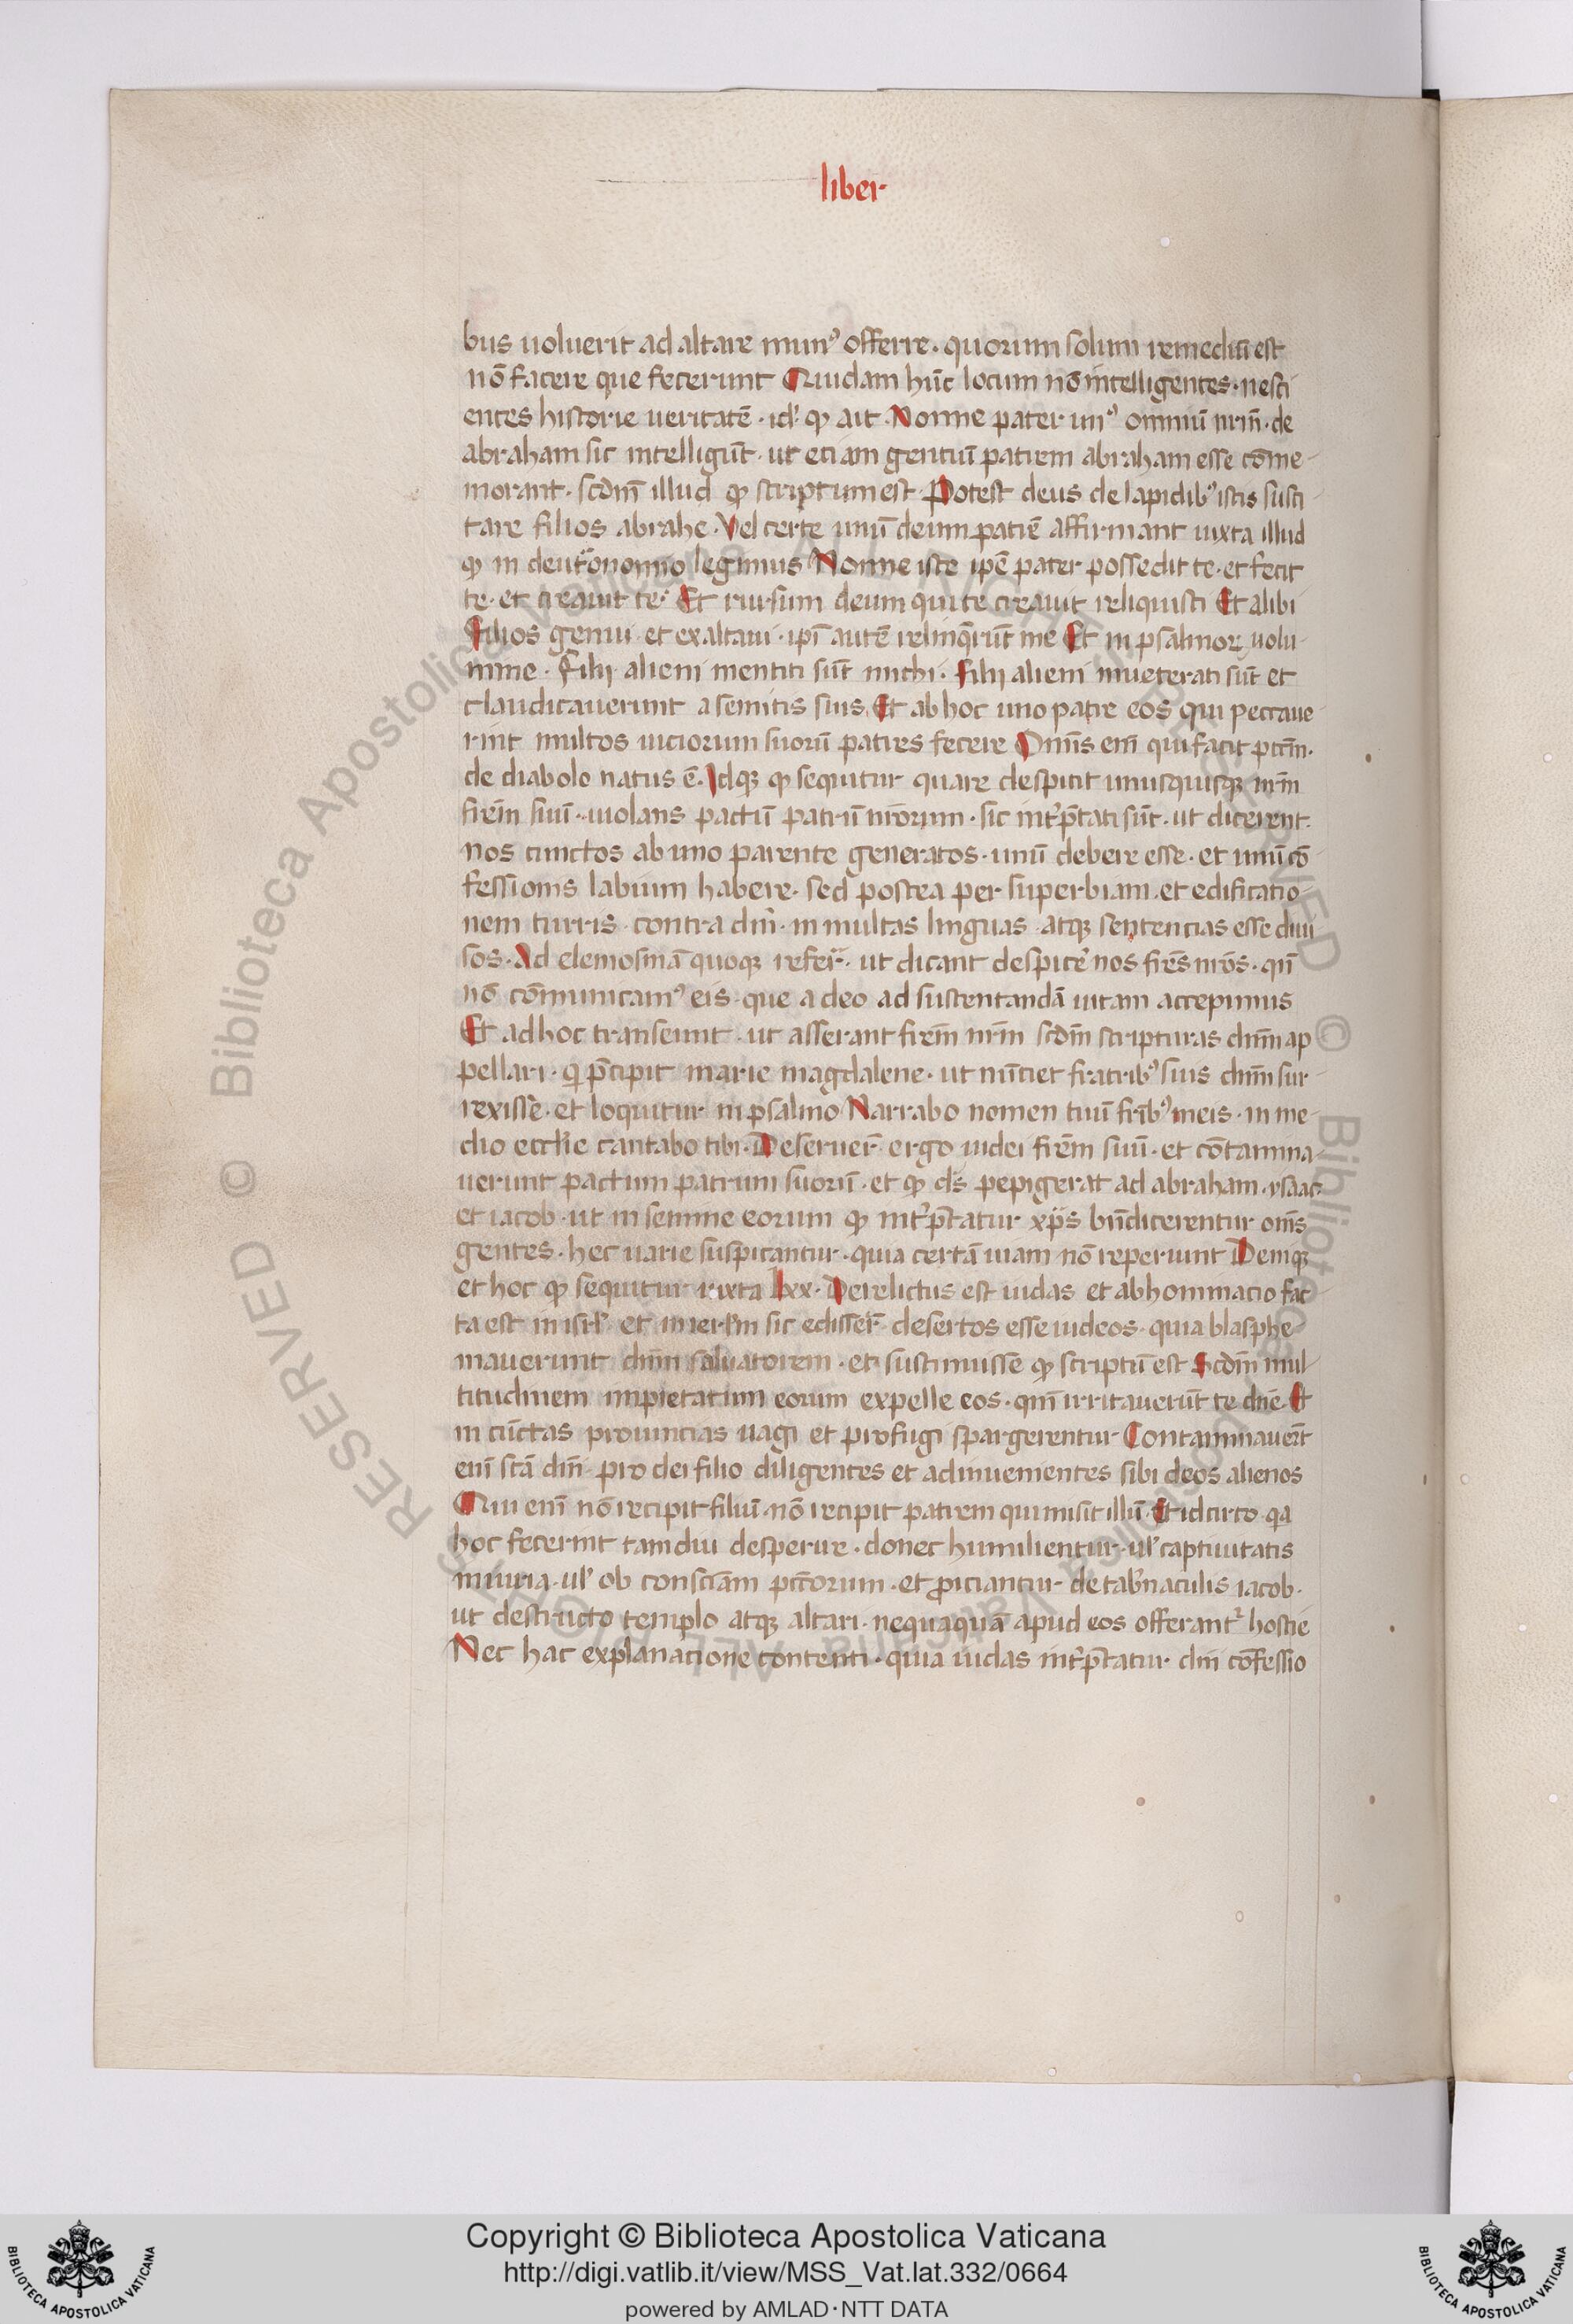 liber
bus uoluerit ad altare munꝰ offerre · quorum solum remediū est
nō facere que fecerunt Quidam hūc locum nō intelligentes · nesci
entes historie ueritatē · idꝰ ꝙ ait · Nonne pater unꝰ omniū nr̄m̄ · de
abraham sic intelligūt · ut etiam gentiū patrem abraham esse cōme-
morant · scdm̄ illud ꝙ scriptum est · Potest deus de lapidibꝰ istis susci-
tare filios abrahe · Vel certe unū deum patrē affirmant iuxta illud
ꝙ in deut̄onomio legimus Nonne iste ipē pater possedit te · et fecit
te · et creauit te · Et rursum deum qui te creauit reliquisti Et alibi
Filios genui · et exaltaui · ipī autē relinq̄rūt me Et in psalmoꝝ uolu-
mine · Filii alieni mentiti sūt michi · Filii alieni inueterati sūt et
claudicauerunt a semitis suis Et ab hoc uno patre eos qui peccaue
rint multos uiciorum suorū patres fecere Omīs em̄ qui facit pctm̄ ·
de diabolo natus ē · Idqꝫ ꝙ sequitur quare despicit unusquisqꝫ nr̄m̄
frēm suū · uiolans pactū patrū nr̄orum · sic int̄p̄tati sūt · ut dicerent
nos cunctos ab uno parente generatos · unū debere esse · et unū cō-
fessionis labium habere · sed postea per superbiam · et edificatio-
nem turris · contra dm̄ · in multas linguas · atqꝫ sentencias esse diui
sos · Ad elemosinā quoqꝫ refer̄ · ut dicant despice᷑ nos frēs nr̄os · qn̄
nō cōmunicamꝰ eis · que a deo ad sustentandā uitam accepimus
Et ad hoc transeunt · ut asserant frēm nr̄m scdm̄ scripturas dnm̄ ap
pellari · qi p̄cipit marie magdalene · ut nūciet fratribꝰ suis dnm̄ sur-
rexisse · et loquitur in psalmo Narrabo nomen tuū fr̄ibꝰ meis · in me-
dio ecclīe cantabo tibi · Deseruer̄ ergo iudei frēm suū · et cōtamina-
uerunt pactum patrum suorū · et ꝙ ds̄ pepigerat ad abraham · ysaac
et iacob · ut in semine eorum ꝙ int̄p̄tatur xp̄s bn̄dicerentur omīs
gentes · hec uarie suspicantur · quia certā uiam nō reperiunt Deniqꝫ
et hoc ꝙ sequitur iuxta lxx · Derelictus est iudas et abhominacio fac
ta est in isrl̄ et in ierl̄m sic edisser̄ desertos esse iudeos · quia blasphe
mauerunt dnm̄ saluatorem · et sustinuisse ꝙ scriptū est Scdm̄ mul-
titudinem impietatum eorum expelle eos · qm̄ irritauerūt te dn̄e · Et
in cūctas prouincias uagi et profugi spargerentur Contaminauer̄t
enī scā dn̄i · pro dei filio diligentes et adinuenientes sibi deos alienos
Qui enī nō recipit filiū · nō recipit patrem qui misit illū · Et idcirco · qa
hoc fecerint tamdiu desperire · donec humilientur · ul̄ captiuitatis
iniuria · ul̄ ob consciam pctorum · et ꝓiciantur de tab̄naculis iacob ·
ut destructo templo atqꝫ altari · nequaquā apud eos offerant᷑ hostie
Nec hac explanacione contenti · quia iudas int̄p̄tatur dn̄i cōfessio
RESERVED © Biblioteca Apostolica Vaticana ALL RIGHTS RESERVED © Biblioteca Apostolica Vaticana ALL RIGHTS
Copyright © Biblioteca Apostolica Vaticana
http://digi.vatlib.it/view/MSS_Vat.lat.332/0664
powered by AMLAD·NTT DATA
BIBLIOTECA APOSTOLICA VATICANA
BIBLIOTECA APOSTOLICA VATICANA